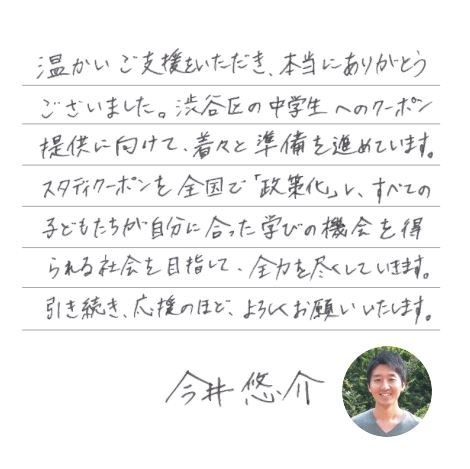 温かいご支援をいただき、本当にありがとう
ございました。渋谷区の中学生へのクーポン
提供に向けて、着々と準備を進めています。
スタディクーポンを全国で「政策化」し、すべての
子どもたちが自分に合った学びの機会を得
られる社会を目指して、全力を尽くしていきます。
引き続き、応援のほど、よろしくお願いいたします。
今井悠介